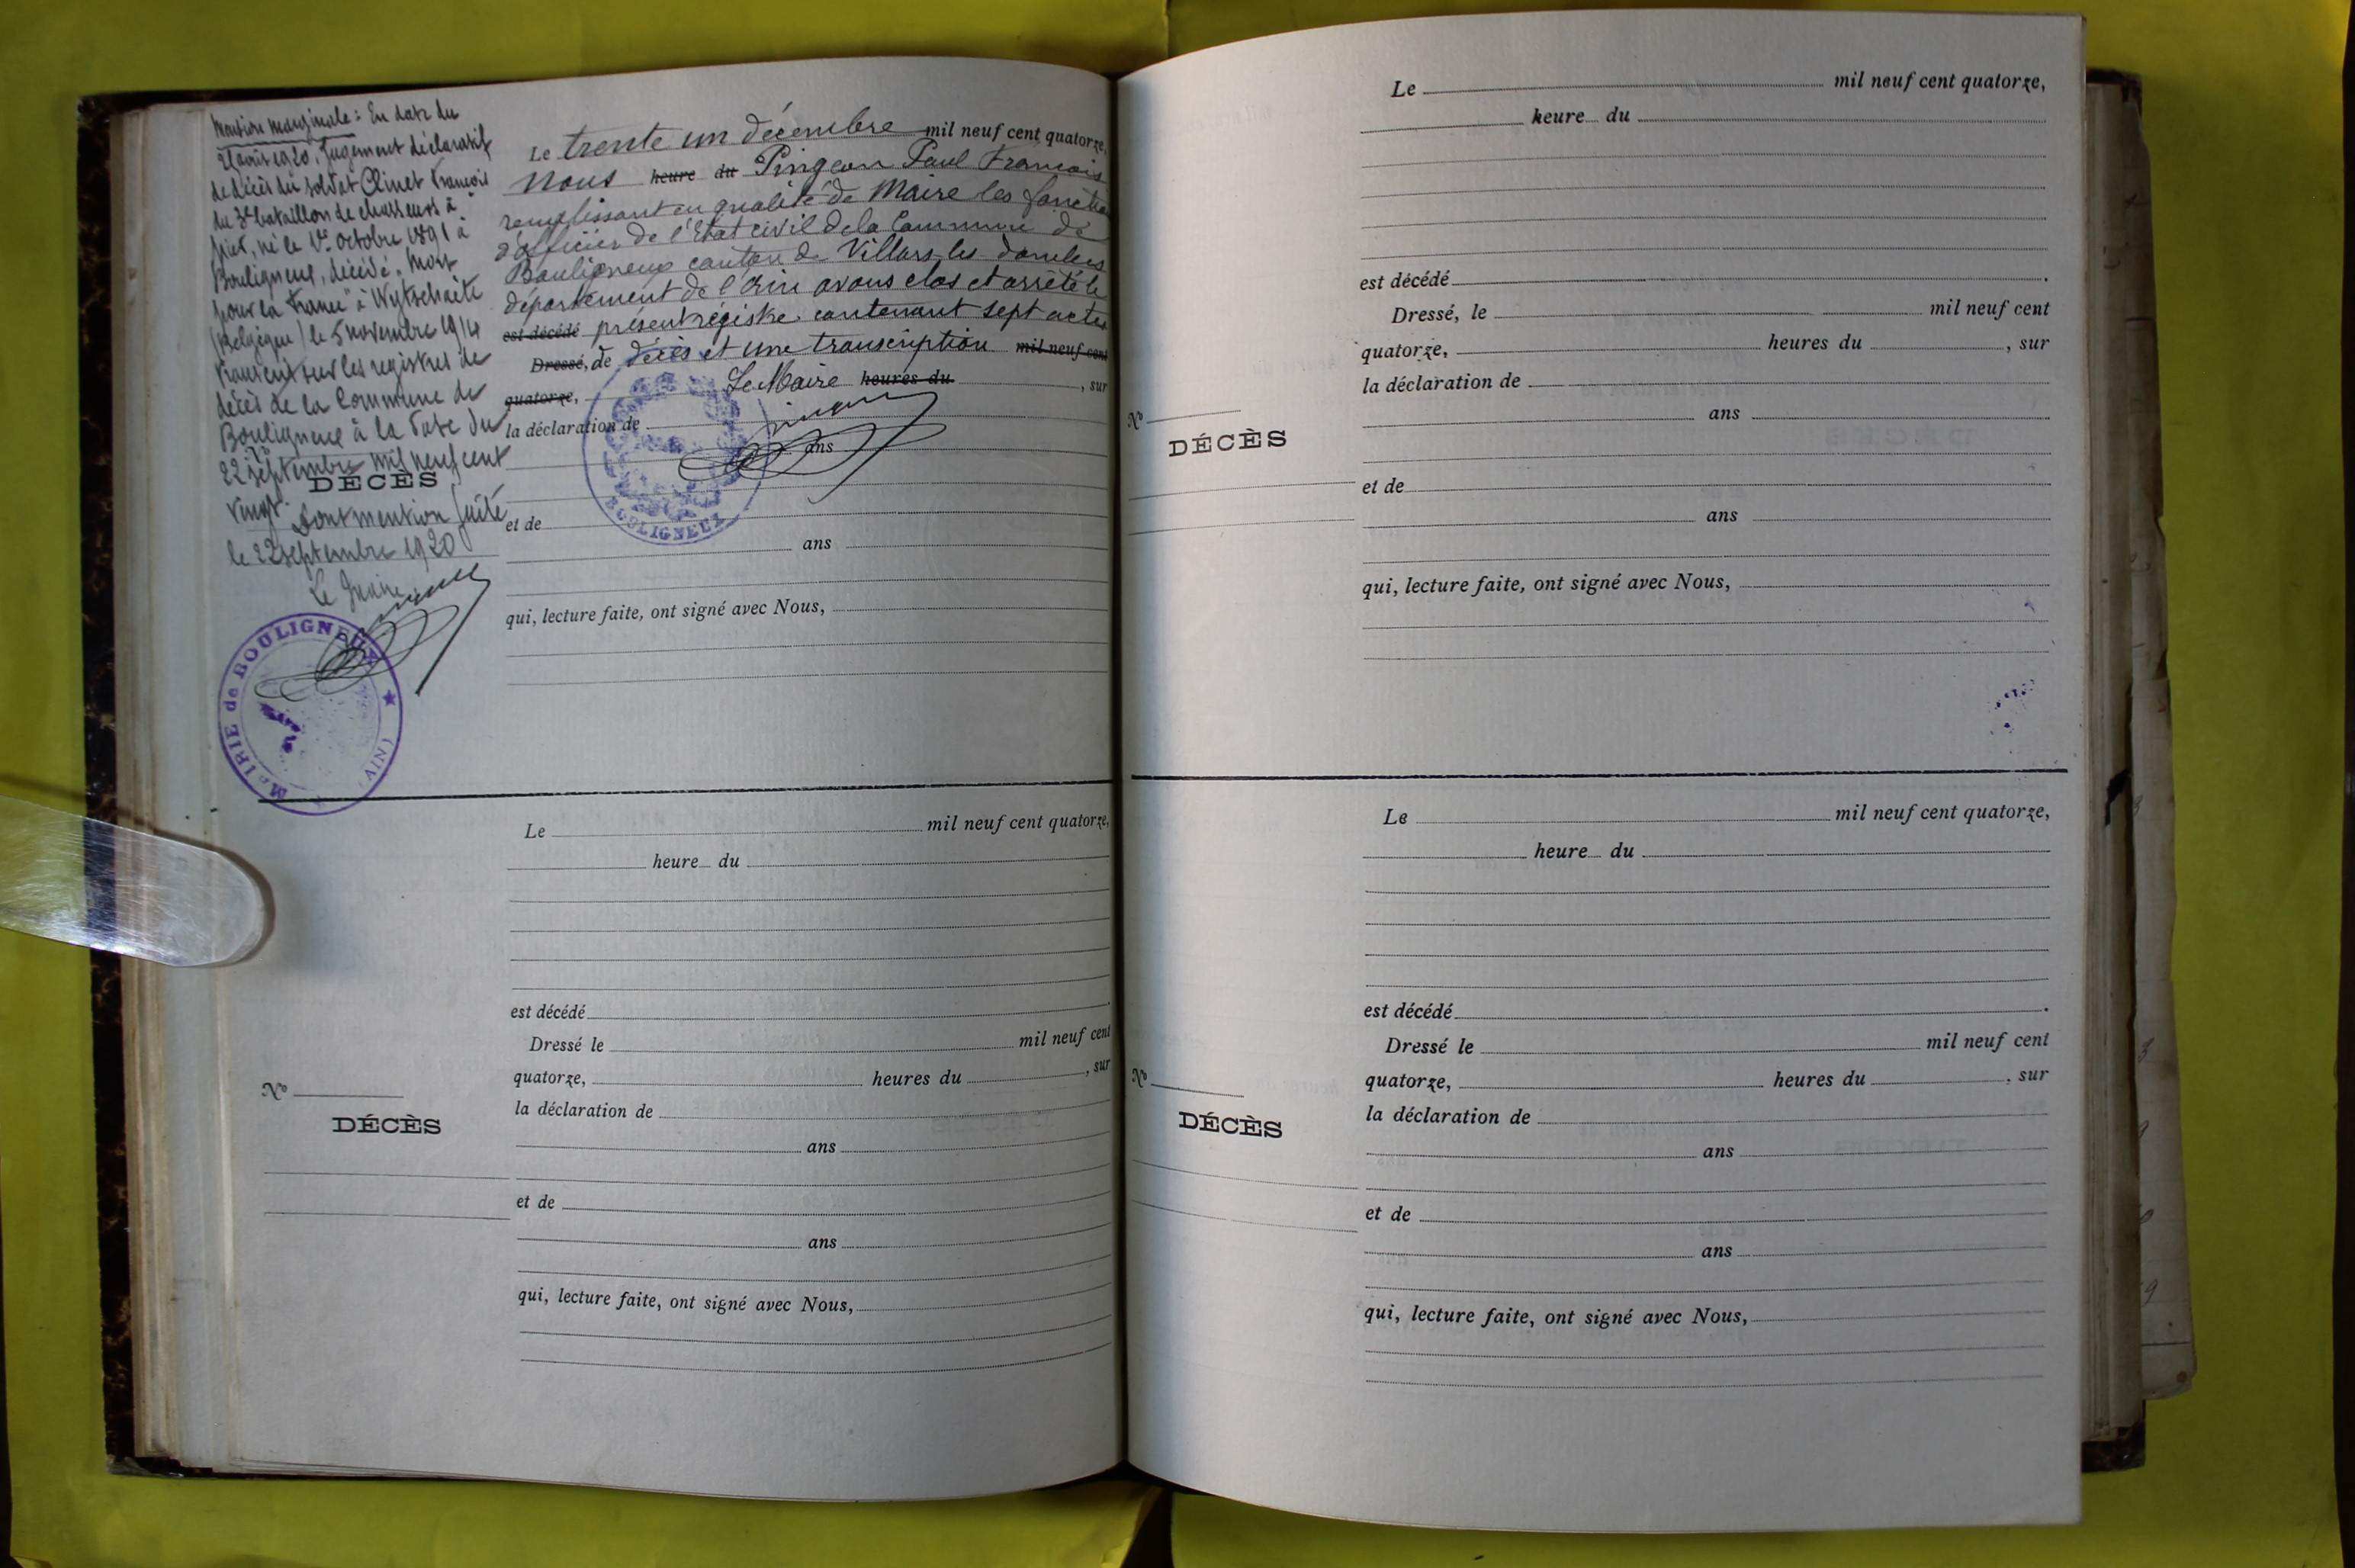 Mention marginale : En date du
21 août 1920, Jugement déclaratif
de décès du soldat Clinet François
du 3e bataillon de chasseurs à
pied, né le 1er octobre 1891 à
Bouligneux, décédé "Mort
pour la France" à Wytschaète
(Belgique) le 5 novembre 1914
Transcrit sur les registres de
décès de la Commune de
Bouligneux à la date du
22 septembre mil neuf cent
vingt.
DÉCÈS
Dont mention faite
le 22 septembre 1920
Le Maire
MAIRIE de BOULIGNEUX
(AIN)
Le trente un décembre mil neuf cent quatorze,
Nous heure du Pingeon Paul François
remplissant en qualité de Maire les fonctions
d'officier de l'Etat civil de la Commune de
Bouligneux canton de Villars les dombes
département de l'Ain avons clos et arrêté le
est décédé présent régistre contenant sept actes
Dressé, de décès et une transcription mil neuf cent
quatorze, Le Maire heures du , sur
la déclaration de
ans
BOULIGNEUX
et de
ans
qui, lecture faite, ont signé avec Nous,
Le mil neuf cent quatorze,
heure du
est décédé
Dressé le mil neuf cent
quatorze, heures du , sur
No
la déclaration de
DÉCÈS
ans
et de
ans
qui, lecture faite, ont signé avec Nous,
Le mil neuf cent quatorze,
heure du
est décédé .
Dressé, le mil neuf cent
quatorze, heures du , sur
la déclaration de
No
ans
DÉCÈS
et de
ans
qui, lecture faite, ont signé avec Nous,
Le mil neuf cent quatorze,
heure du
est décédé .
Dressé le mil neuf cent
quatorze, heures du , sur
No
la déclaration de
DÉCÈS
ans
et de
ans
qui, lecture faite, ont signé avec Nous,